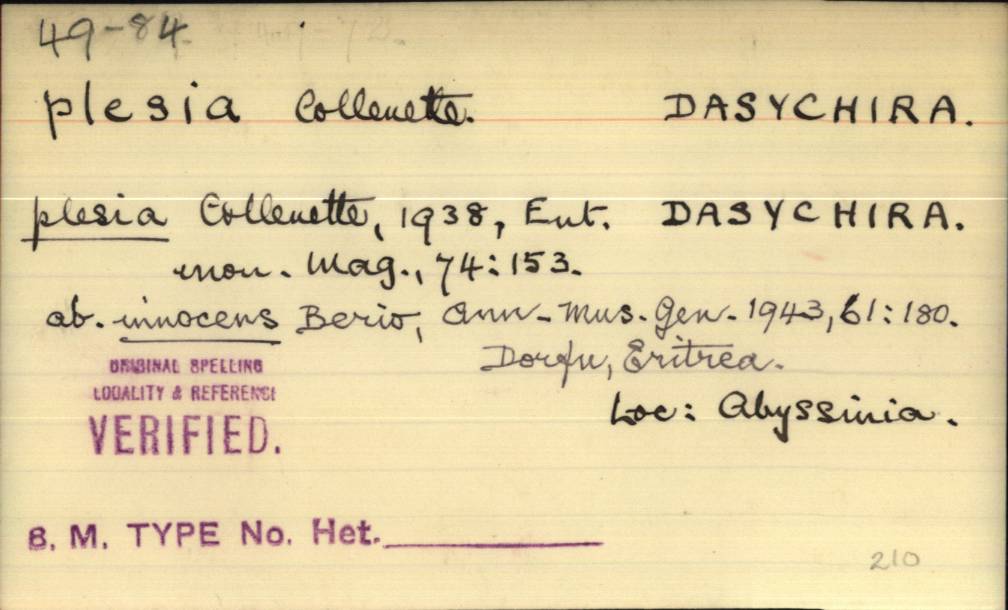 49-84.
plesia Collenette. DASYCHIRA.
plesia Collenette, 1938, Ent. DASYCHIRA.
mon. Mag., 74:153.
ab. innocens Berio, Ann. Mus. Gen. 1943, 61:180.
Dorfu, Eritrea.
ORIGINAL SPELLING
LOCALITY & REFERENCE
VERIFIED.
Loc: Abyssinia.
B. M. TYPE No. Het.
210